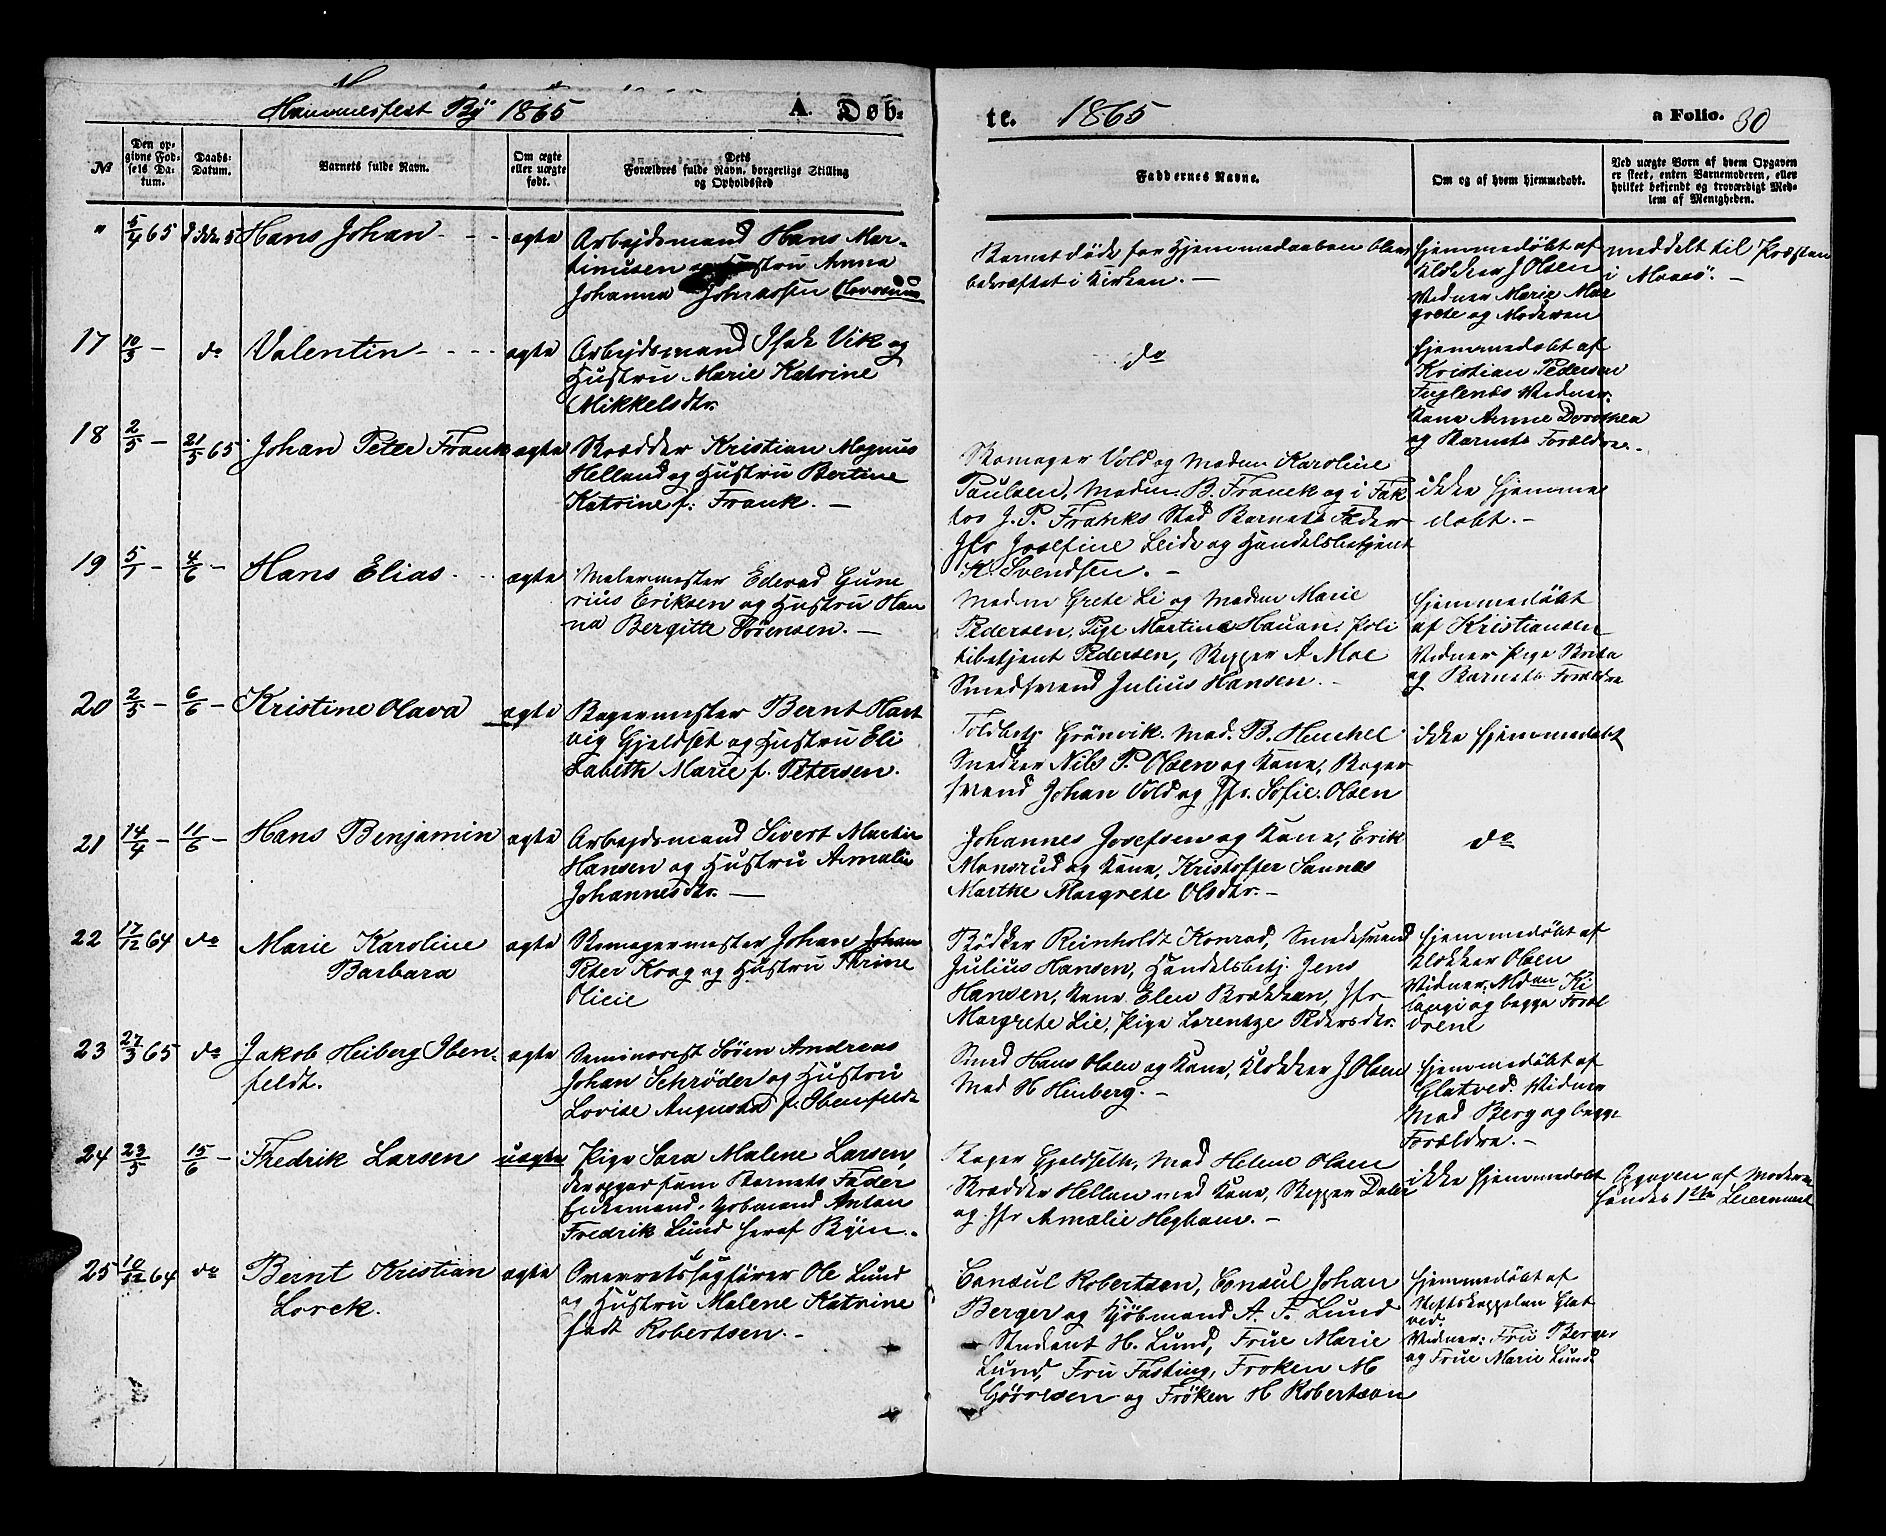 Hammerfest By 1865 A. Døb-
te. 1865 a Folio. 30
No
Den op-
givne Fød-
sels Da-
tum.
Daabs-
Datum.
Barnets fulde Navn.
Om ægte
eller uægte
født.
Dets
Forældres fulde Navn, borgerlige Stilling
og Opholdssted
Faddernes Navne.
Om og af hvem hjemmedøbt.
Ved uægte Børn af hvem Opgaven
er skeet, enten Barnemoderen, eller
hvilket bekjendt og troværdigt Med-
lem af Menigheden.
" 5/4 65 Hans Johan - - - ægte
Arbejdsmand Hans Mar-
tinusen og Hustru Anna
Johanna Johnsosen
Barnet døde før Hjemmedaaben blev
bekræftet i Kirken. -
hjemmedøbt af
Klokker J Olsen
Vidner Marie Mar
grete og Moderen
meddelt til Præsten
i Maasø. -
17 10/3 - do Valentin - - - - ægte
Arbejdsmand Isak Vik og
Hustru Marie Katrine
Mikkelsdtr.
do
hjemmedøbt af
Kristian Pedersen
Fuglenes Vidner.
Kone Anne Dorothea
og Barnets Forældre. -
18 2/5 - 21/5 65 Johan Peter Frank ægte
Skrædder Kristian Magnus
Helland og Hustru Bertine
Katrine f. Frank. -
Skomager Vold og Madm. Karoline
Paulsen, Madm. B. Franck og i Fak
tor J. P. Franks Sted Barnets Fader
Jfr Josefine Leide og Handelsbetjent
K. Svendsen. -
ikke hjemme
døbt. -
19 5/1 - 4/6 - Hans Elias - - - ægte
Malermester Edevard Gune
rius Eriksen og Hustru Han
na Bergitte Sørensen. -
Madm Grete Li og Madm Marie
Pedersen, Pige Martine Hauan, Poli
tibetjent Pedersen, Skipper A Moe
Smedsvend Julius Hansen. -
hjemmedøbt
af Kristiansen
Vidner Pige Brita
og Barnets Forældre
20 2/5 - 6/6 - Kristine Olava ægte
Bagermester Bernt Hart
vig Gjeldset og Hustru Eli
sabeth Marie f. Petersen.
Toldbetj Grønvik. Mad. B. Henchel
Snedker Nils P. Olsen og Kone, Bager
svend Johan Vold og Jfr. Sofie Olsen
ikke hjemmedøbt
21 14/4 - 11/6 - Hans Benjamin ægte
Arbejdsmand Sivert Martin
Hansen og Hustru Amalie
Johannesdtr. -
Johannes Josefsen og Kone, Erik
Monsrud og Kone, Kristoffer Sannes
Marthe Margrete Olsdtr. -
do
22 17/12 64 do Marie Karoline
Barbara
ægte
Skomagermester Johan Johan
Peter Krog og Hustru Thrine
Olieie
Bødker Reinholdt Konrad, Smedesvend
Julius Hansen, Handelsbetj. Jens
Hansen, Kone Elen Brækkan, Jfr
Margrete Lie, Pige Lorentze Pedersdtr.
hjemmedøbt af
Klokker Olsen
Vidner: Mdm Ki
og begge Foræl
drene
23 27/3 65 do Jakob Heiberg Iben-
feldt.
ægte
Seminarist Søren Andreas
Johan Schrøder og Hustru
Lovise Augusta f. Ibenfeldt
Smed Hans Olsen og Kone, Klokker J Olsen
Mad H Heiberg. -
hjemmedøbt af
Glatved. Vidner
Mad Berg og begge
Forældre. -
24 23/5 15/6 - Fredrik Larsen uægte
Pige Sara Malene Larsen,
der opgav som Barnets Fader
Enkemand, Kjøbmand Anton
Fredrik Lund heraf Byen.
Bager Gjeldseth, Mad Helene Olsen
Skrædder Hellan med Kone, Skipper Daler
og Jfr Amalie Heghum. -
ikke hjemmedøbt
Opgaven af Moderen
hendes 1ste Leiermaal
25 10/12 64 do Bernt Kristian
Lorck.
ægte
Overretssagfører Ole Lund
og Hustru Malene Katrine
født Robertsen. -
Consul Robertsen, Consul Johan
Berger og Kjøbmand A. F. Lund
Student H. Lund, Frue Marie
Lund, Fru Fasting, Frøken M
og Frøken H Robertson
hjemmedøbt af
Stiftskappelan Glat
ved.
Vidner: Fru Berger
og Frue Marie Lund.